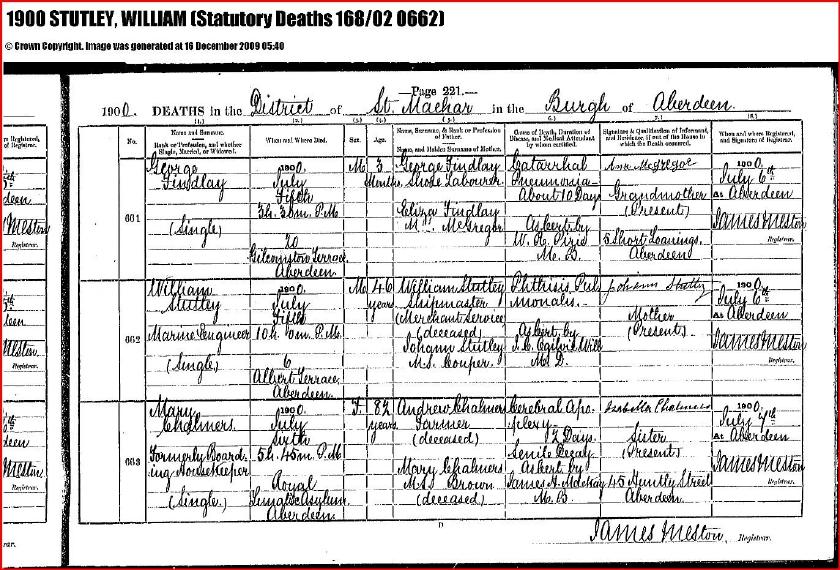 1900 STUTLEY, WILLIAM (Statutory Deaths 168/02 0662)
© Crown Copyright. Image was generated at 16 December 2009 05:40
—Page 221.—
1900. DEATHS in the District of St. Machar in the Burgh of Aberdeen.
No.
Name and Surname.
Rank or Profession, and whether Single, Married, or Widowed.
When and Where Died.
Sex.
Age.
Name, Surname, & Rank or Profession of Father.
Name, and Maiden Surname of Mother.
Cause of Death, Duration of Disease, and Medical Attendant by whom certified.
Signature & Qualification of Informant, and Residence, if out of the House in which the Death occurred.
When and where Registered, and Signature of Registrar.
661
George
Findlay
(Single)
1900.
July
Fifth
3h. 30m. P.M.
20
Gilcomston Terrace
Aberdeen
M
3
Months
George Findlay
Shore Labourer
Eliza Findlay
M.S. McGregor
Catarrhal
Pneumonia
About 10 Days
As cert. by
M. B.
Ann McGregor
Grandmother
(Present)
5 Short Loanings,
Aberdeen
1900.
July 6th
At Aberdeen
James Meston
Registrar.
662
William
Stutley
Marine Engineer
(Single)
1900.
July
Fifth
10h. 0m. P.M.
6
Albert Terrace,
Aberdeen.
M
46
years
William Stutley
Shipmaster
(Merchant Service)
(deceased)
Johann Stutley
M.S. Couper.
Phthisis Pul
monalis.
As cert. by
J. C. Ogilvie Will
M. D.
Johann Stutley
Mother
(Present)
1900.
July 6th
At Aberdeen
James Meston
Registrar.
663
Mary
Chalmers
Formerly Board-
ing Housekeeper
(Single.)
1900.
July
Sixth
5h. 45m. P.M
Royal
Lunatic Asylum
Aberdeen.
F.
82
years
Andrew Chalmers
(deceased)
Mary Chalmers
M.S. Brown
(deceased)
Cerebral Apo-
plexy
12 Days
Senile Decay
As cert. by
M. B.
Isabella Chalmers
Sister
(Present)
45 Huntly Street
Aberdeen.
1900.
July 7th
At Aberdeen
James Meston
Registrar.
James Meston, Registrar.